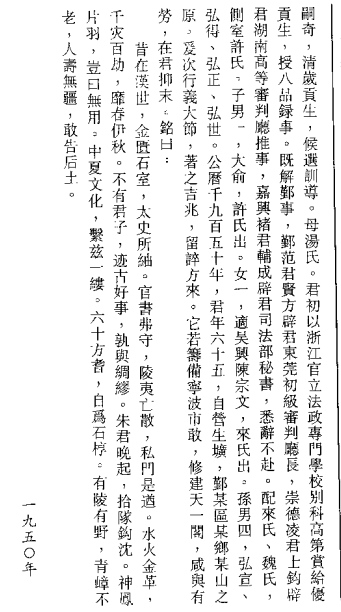 嗣奇，清歲貢生，候選訓導。母湯氏。君初以浙江官立法政專門學校別科高第賞給優
貢生，授八品録事。既解鄞事，鄞范君賢方辟君東莞初級審判廳長，崇德凌君士鈞辟
君湖南高等審判廳推事，嘉興褚君輔成辟君司法部秘書，悉辭不赴。配來氏、魏氏，
側室許氏。子男一，大俞，許氏出。女一，適吴興陳宗文，來氏出。孫男四，弘宣、
弘得、弘正、弘世。公曆千九百五十年，君年六十五，自營生壙，鄞某區某鄉某山之
原。爰次行義大節，著之吉兆，留誶方來。它若籌備寧波市政，修建天一閣，咸與有
勞，在君抑末。銘曰：
昔在漢世，金匱石室，太史所紬。官書弗守，陵夷亡散，私門是遒。水火金革，
千灾百劫，靡春伊秋。不有君子，迹古好事，孰與綢繆。朱君晚起，拾隊鈎沈。神鳳
片羽，豈曰無用。中夏文化，繫兹一縷。六十方耆，自爲石椁。有陵有野，青嶂不
老，人壽無疆，敢告后土。
一九五〇年